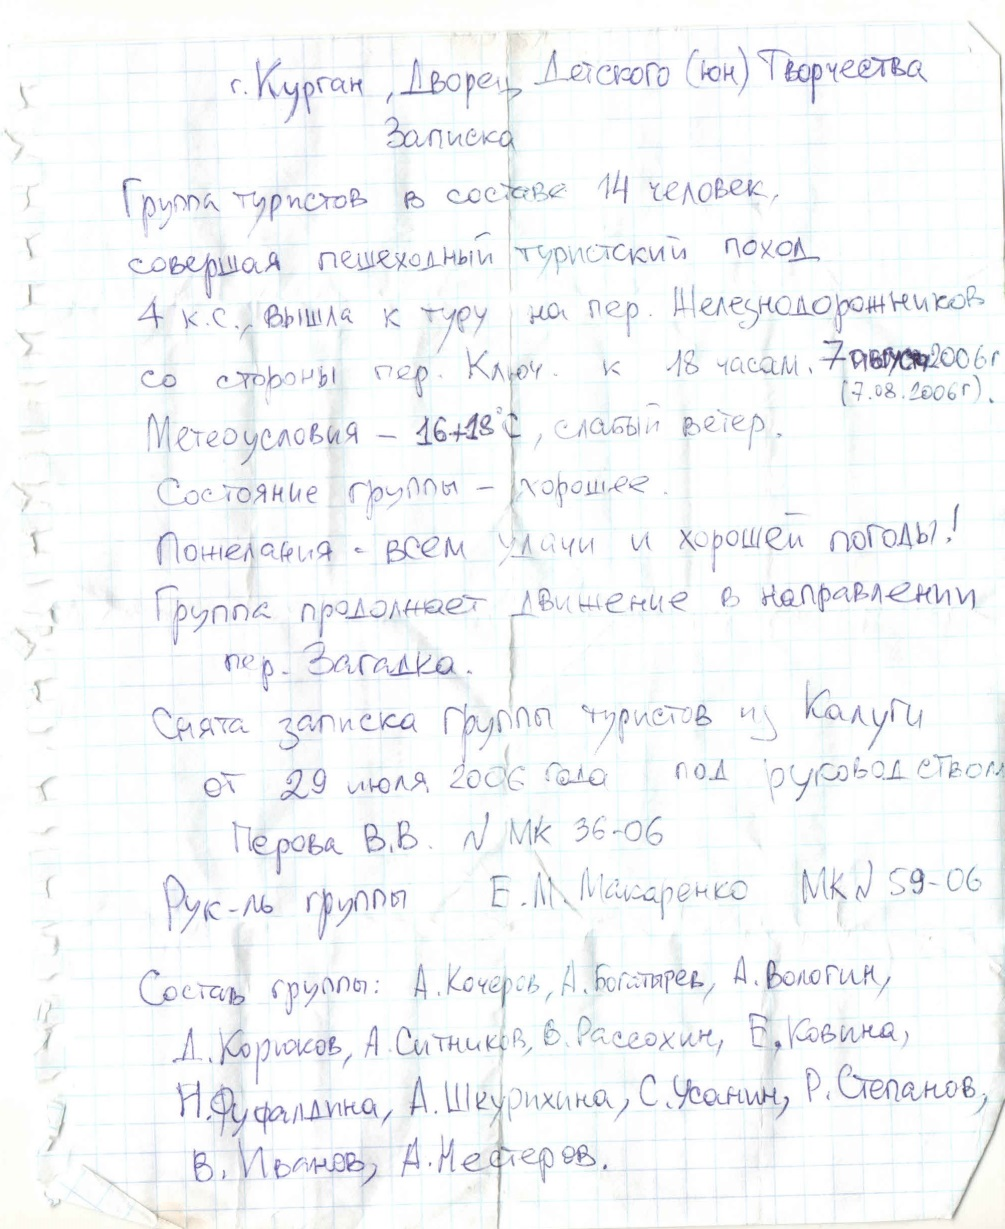 г. Курган, Дворец Детского (юн) Творчества
Записка
Группа туристов в составе 14 человек,
совершая пешеходный туристский поход
4 к.с., вышла к туру на пер. Железнодорожников
со стороны пер. Ключ. к 18 часам. 7 августа 2006г
(7.08.2006г).
Метеоусловия – 16+18°C, слабый ветер.
Состояние группы – хорошее.
Пожелания - всем удачи и хорошей погоды!
Группа продолжает движение в направлении
пер. Загадка.
Снята записка группы туристов из Калуги
от 29 июля 2006 года под руководством
Перова В.В. N МК 36-06
Рук-ль группы Е.М. Макаренко МК N 59-06
Состав группы: А.Кочеров, А.Богатырев, А.Вологин,
Д.Корюков, А.Ситников, В.Рассохин, Е.Ковина,
Н.Фуфалдина, А.Шкурихина, С.Усанин, Р.Степанов,
В.Иванов, А.Нестеров.